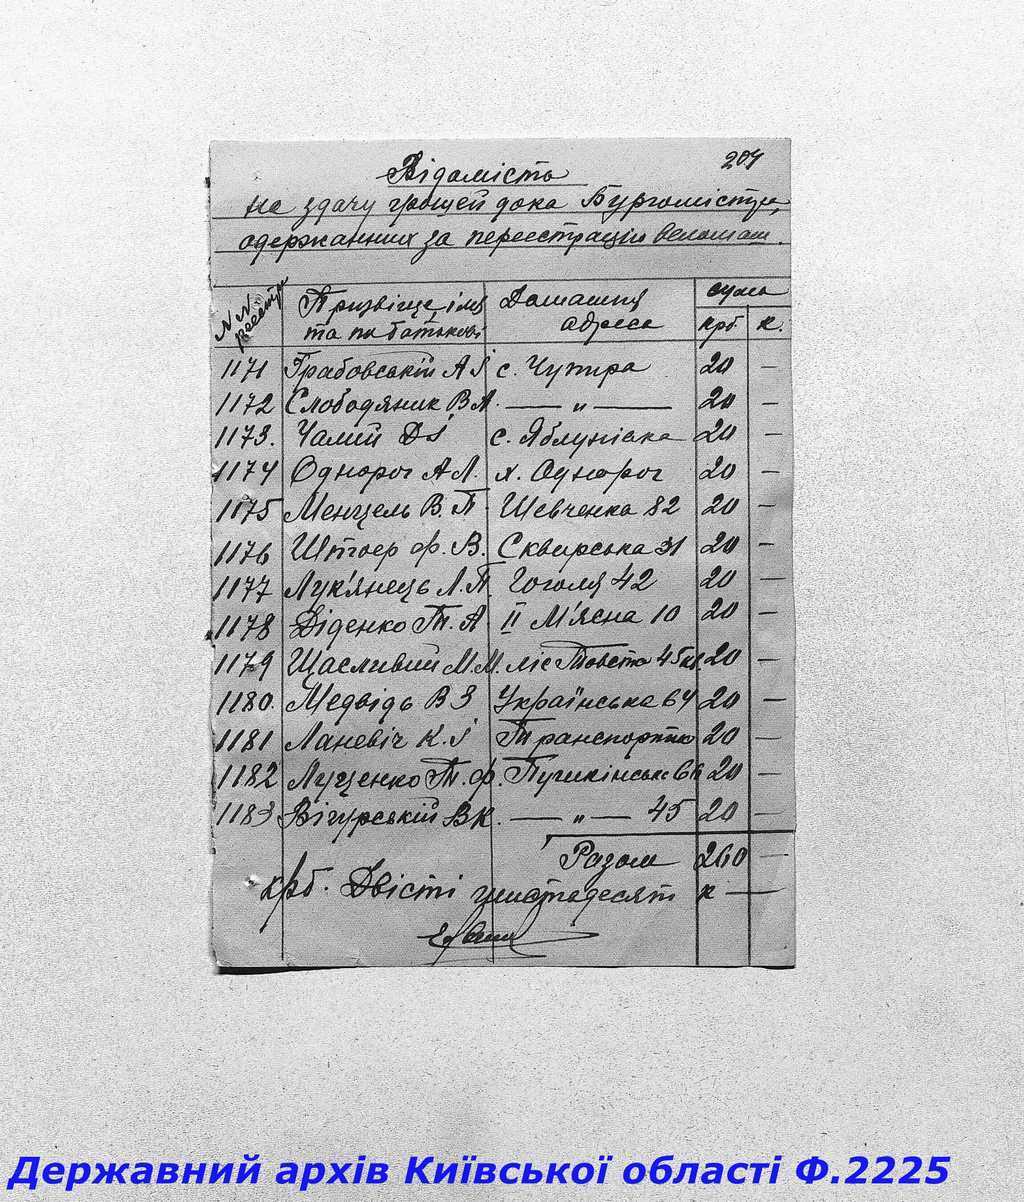 204
Відомість
на здачу грошей до ка Бургомістра,
одержанних за переєстрацію веломаш.
NN реєстр Призвіще, імя та по батькові Домашня адреса сума крб. к.
1171 Грабовський А І с. Чупира 20 —
1172 Слободяник В А. — " — 20 —
1173. Чалий Д І с. Яблунівка 20 —
1174 Однорог А Л. х. Однорог 20 —
1175 Менцель В П. Шевченка 82 20 —
1176 Штоер Ф. В. Сквирська 31 20 —
1177 Лук'янець Л. П. Гоголя 42 20 —
1178 Діденко Т. А ІІ М'ясна 10 20 —
1179 Щасливий М. М. ліс Товста 45 кв. 20 —
1180. Медвідь В З Українська 64 20 —
1181 Ланевіч К. І Транспортно 20 —
1182 Луценко Т. Ф. Пушкінськ 66 20 —
1183 Вігурський В К. — " — 45 20 —
Разом 260 —
крб. Двісті шістдесят к —
Державний архів Київської області Ф.2225